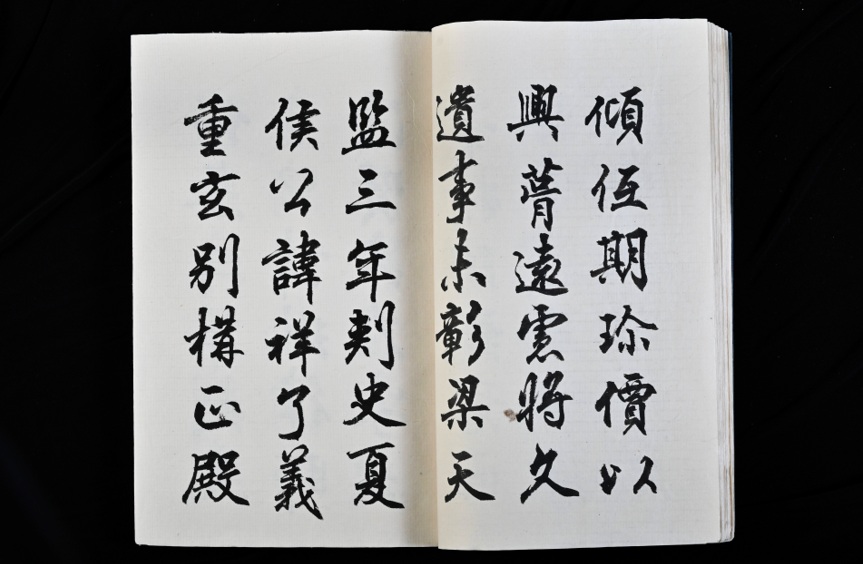 傾恆期珎價以
興嘗遠慮將久
遺事未彰梁天
監三年刺史夏
侯公諱祥了義
重玄別構正殿